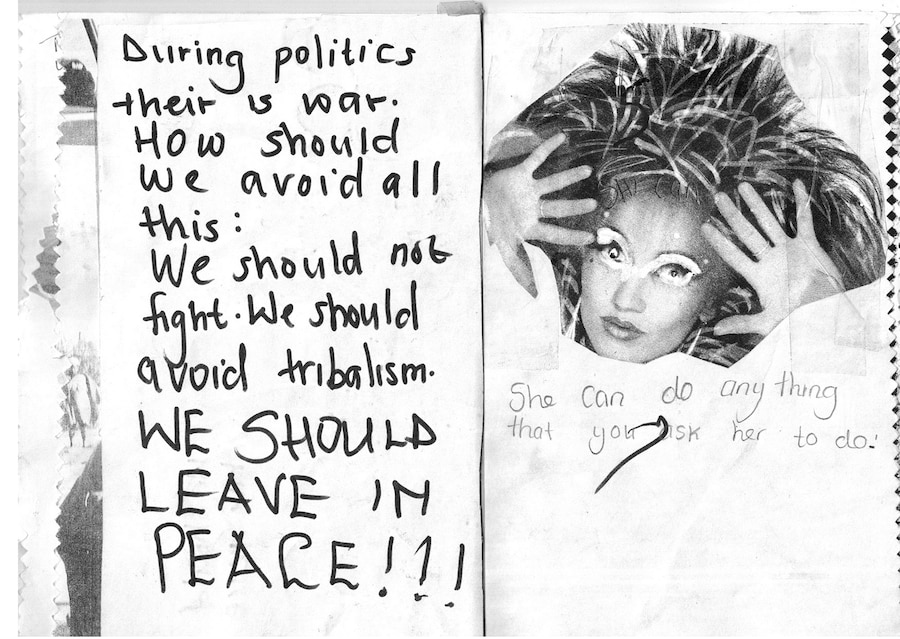 During politics
their is war.
How should
we avoid all
this:
We should not
fight. We should
avoid tribalism.
WE SHOULD
LEAVE IN
PEACE!!!
She can do any thing
that you ask her to do.